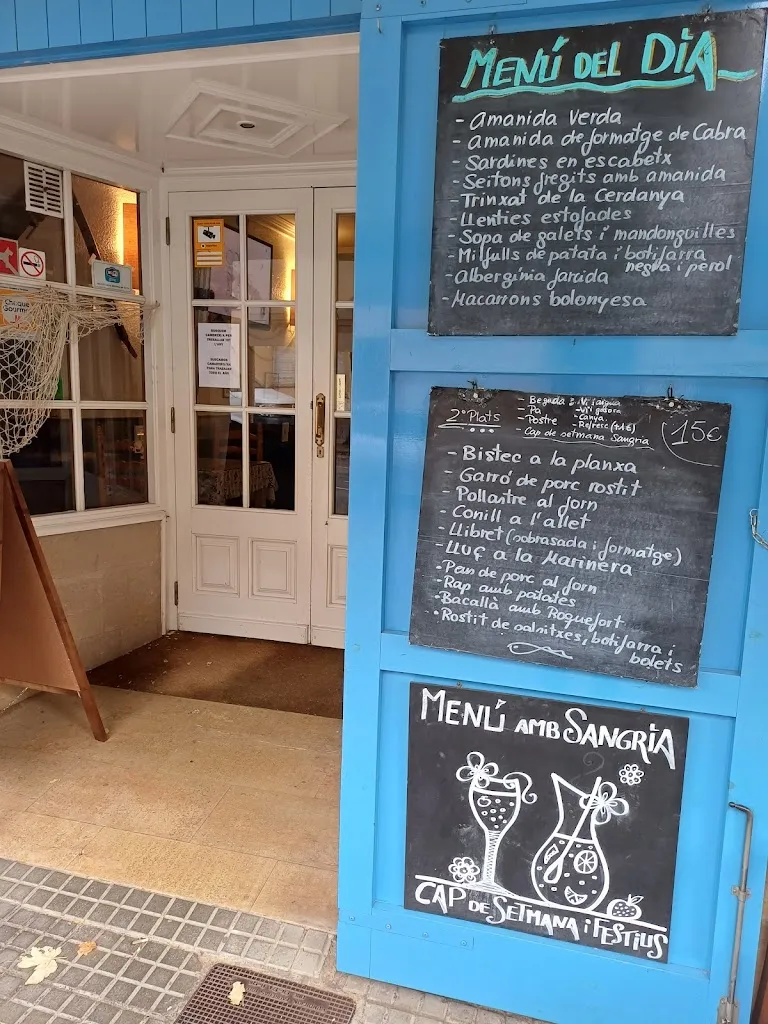 MENÚ DEL DIA
- Amanida Verda
- Amanida de formatge de Cabra
- Sardines en escabetx
- Seitons fregits amb amanida
- Trinxat de la Cerdanya
- Llenties estofades
- Sopa de galets i mandonguilles
- Milfulls de patata i botifarra
negra i perol
- Albergínia farcida
- Macarrons bolonyesa
2º Plats
- Beguda:
- Pa
- Postre
- Canya
- Cap de setmana Sangria
15€
- Bistec a la planxa
- Garró de porc rostit
- Pollastre al forn
- Conill a l'allet
- Llibret (sobrasada i formatge)
- Lluç a la Marinera
- Peu de porc al forn
- Rap amb patates
- Bacallà amb Roquefort
- Rostit de salsitxes, botifarra i
bolets
MENÚ AMB SANGRIA
CAP DE SETMANA i FESTIUS